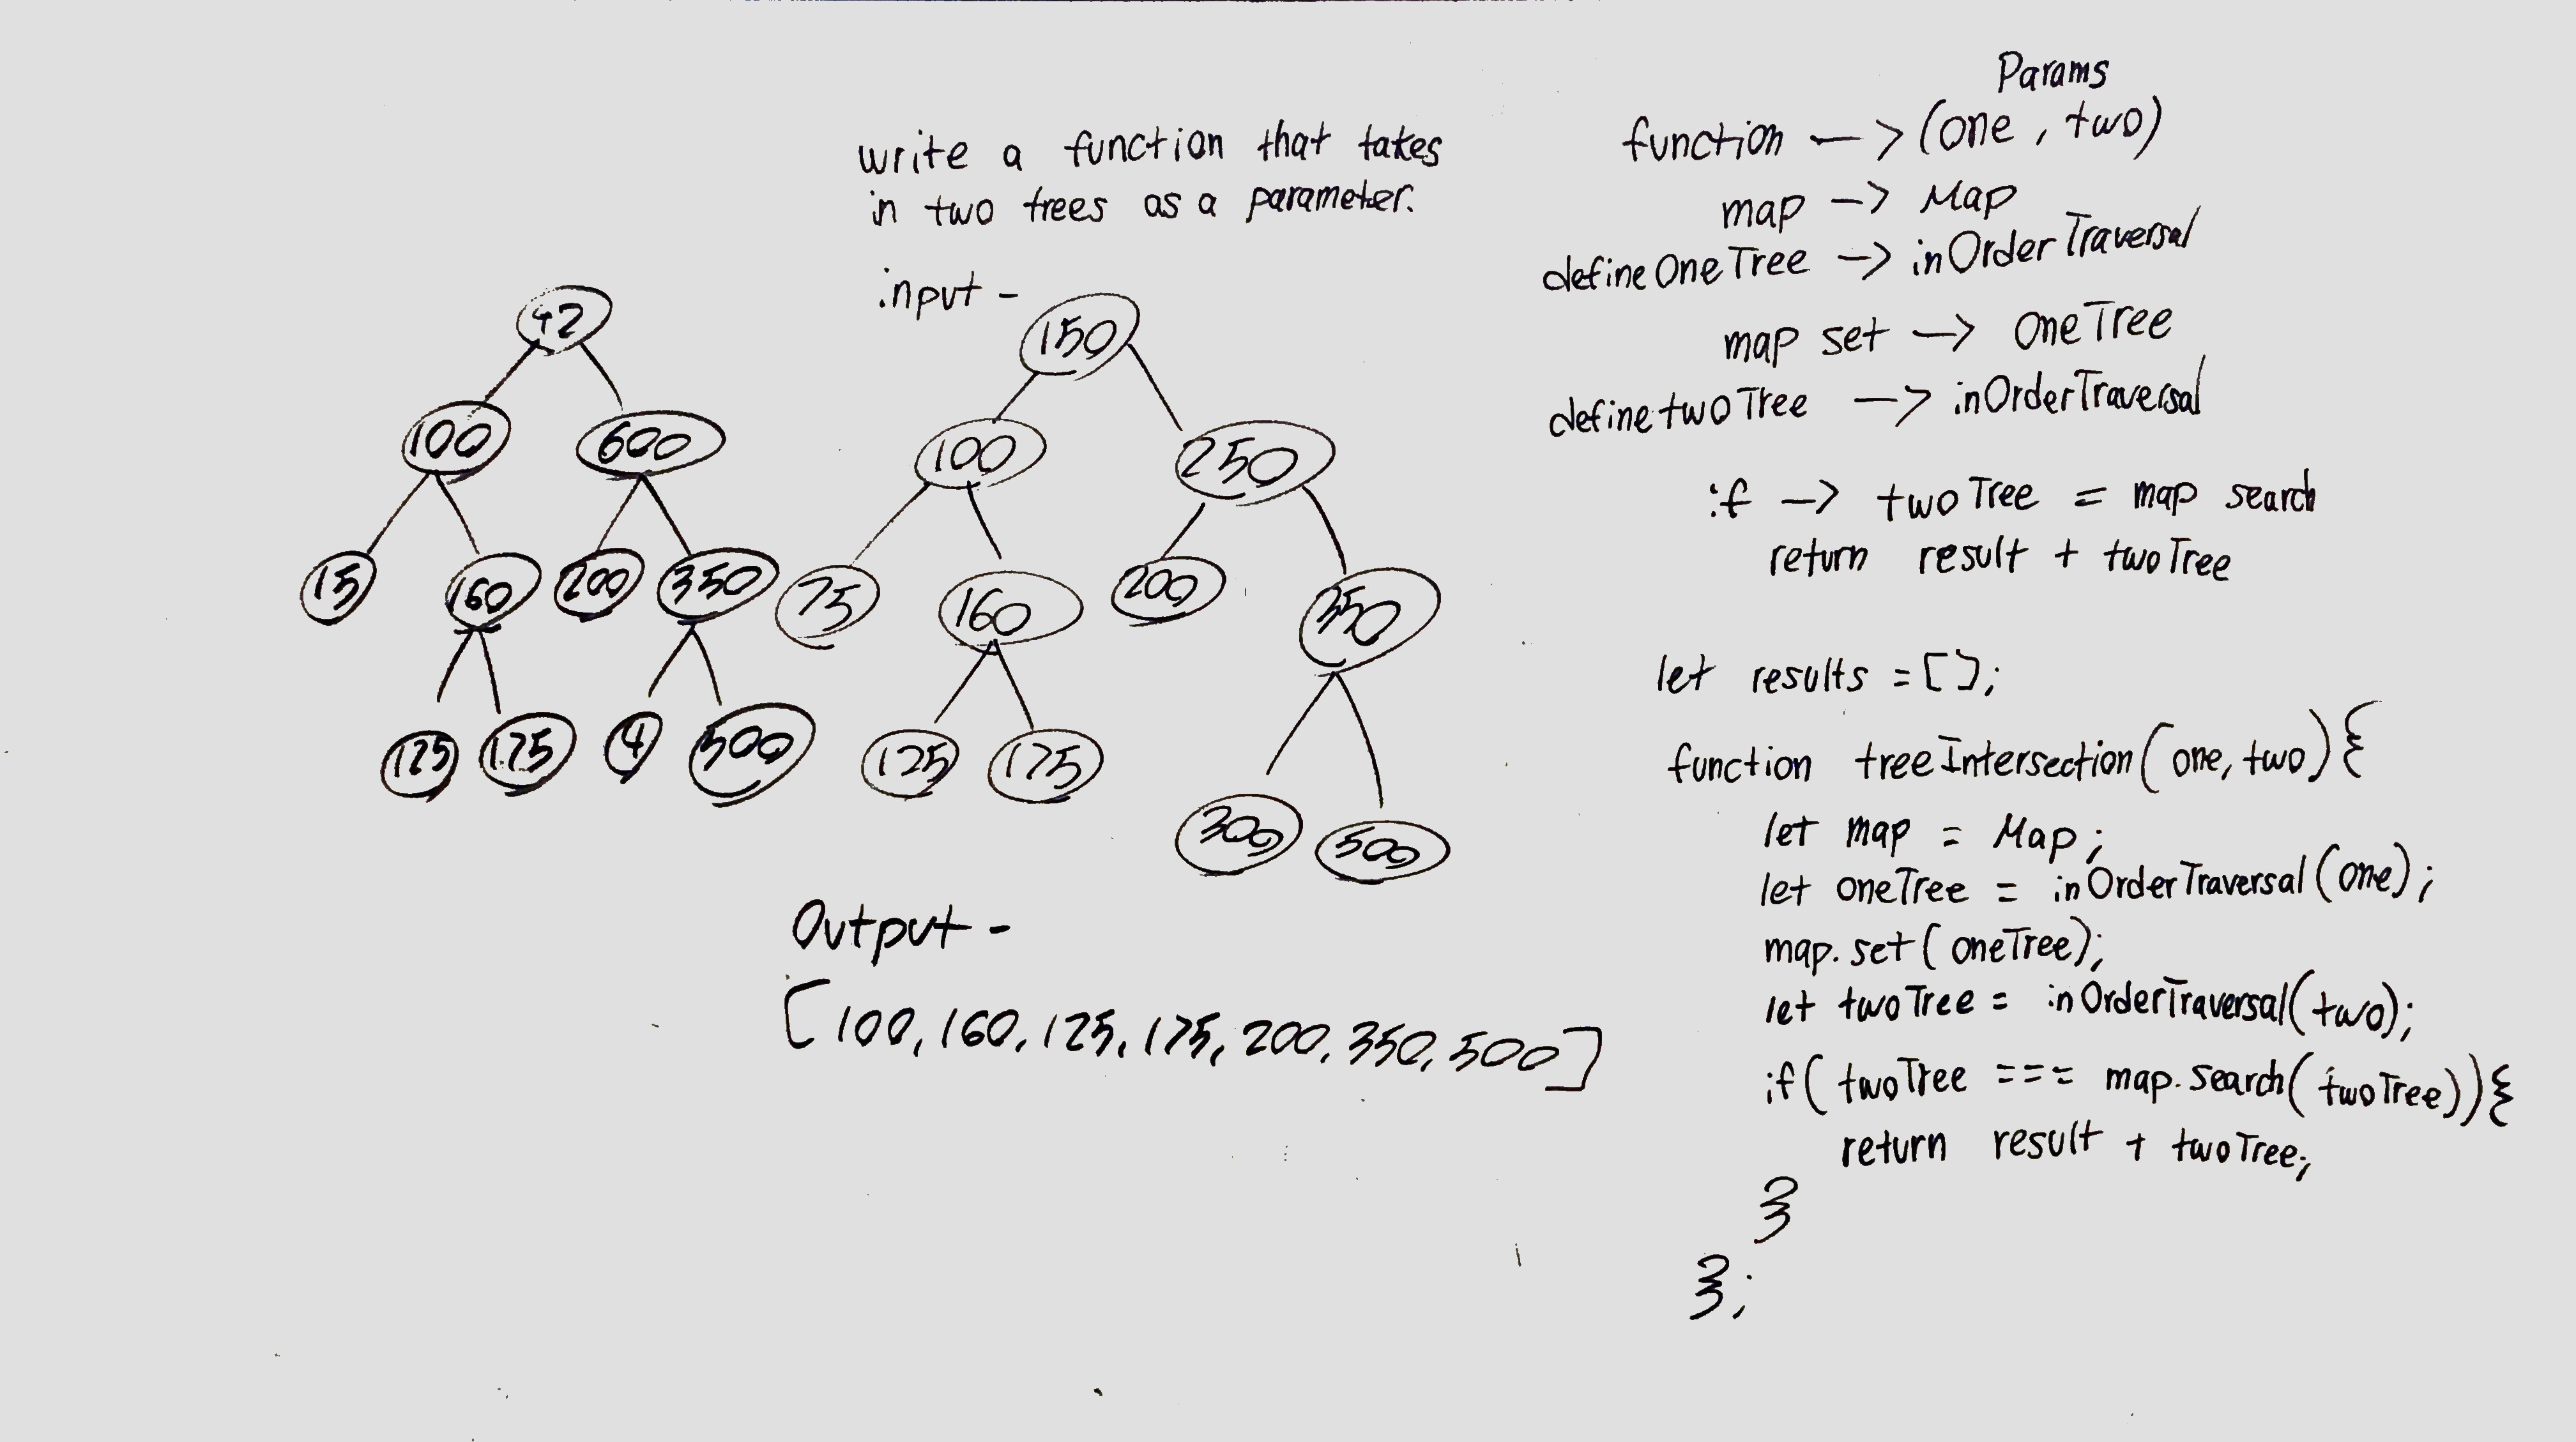 write a function that takes
in two trees as a parameter.
input -
42
100 600
15 160 200 350
125 175 4 500
150
100 250
75 160 200 350
125 175
300 500
Output -
[100, 160, 125, 175, 200, 350, 500]
Params
function -> (one, two)
map -> Map
define OneTree -> inOrderTraversal
map set -> oneTree
define twoTree -> inOrderTraversal
if -> twoTree = map search
return result + twoTree
let results = [];
function treeIntersection(one, two){
let map = Map;
let oneTree = inOrderTraversal(one);
map.set(oneTree);
let twoTree = inOrderTraversal(two);
if(twoTree === map.search(twoTree)){
return result + twoTree;
}
};